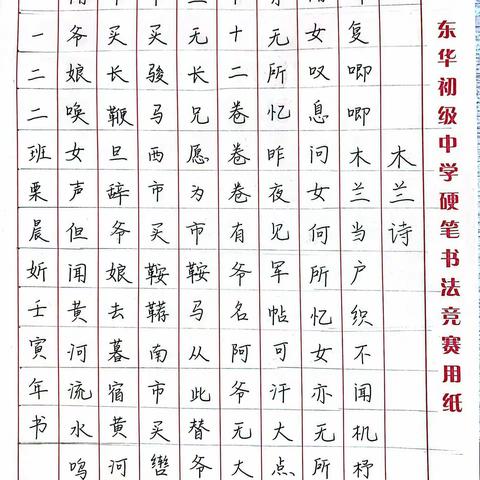 东华初级中学硬笔书法竞赛用纸
木兰诗
复唧唧木兰当户织不闻机杼
女叹息问女何所忆女亦无所
无所忆昨夜见军帖可汗大点
十二卷卷卷有爷名阿爷无大
无长兄愿为市鞍马从此替爷
买骏马西市买鞍鞯南市买辔
买长鞭旦辞爷娘去暮宿黄河
爷娘唤女声但闻黄河流水鸣
一二二班栗晨妡壬寅年书